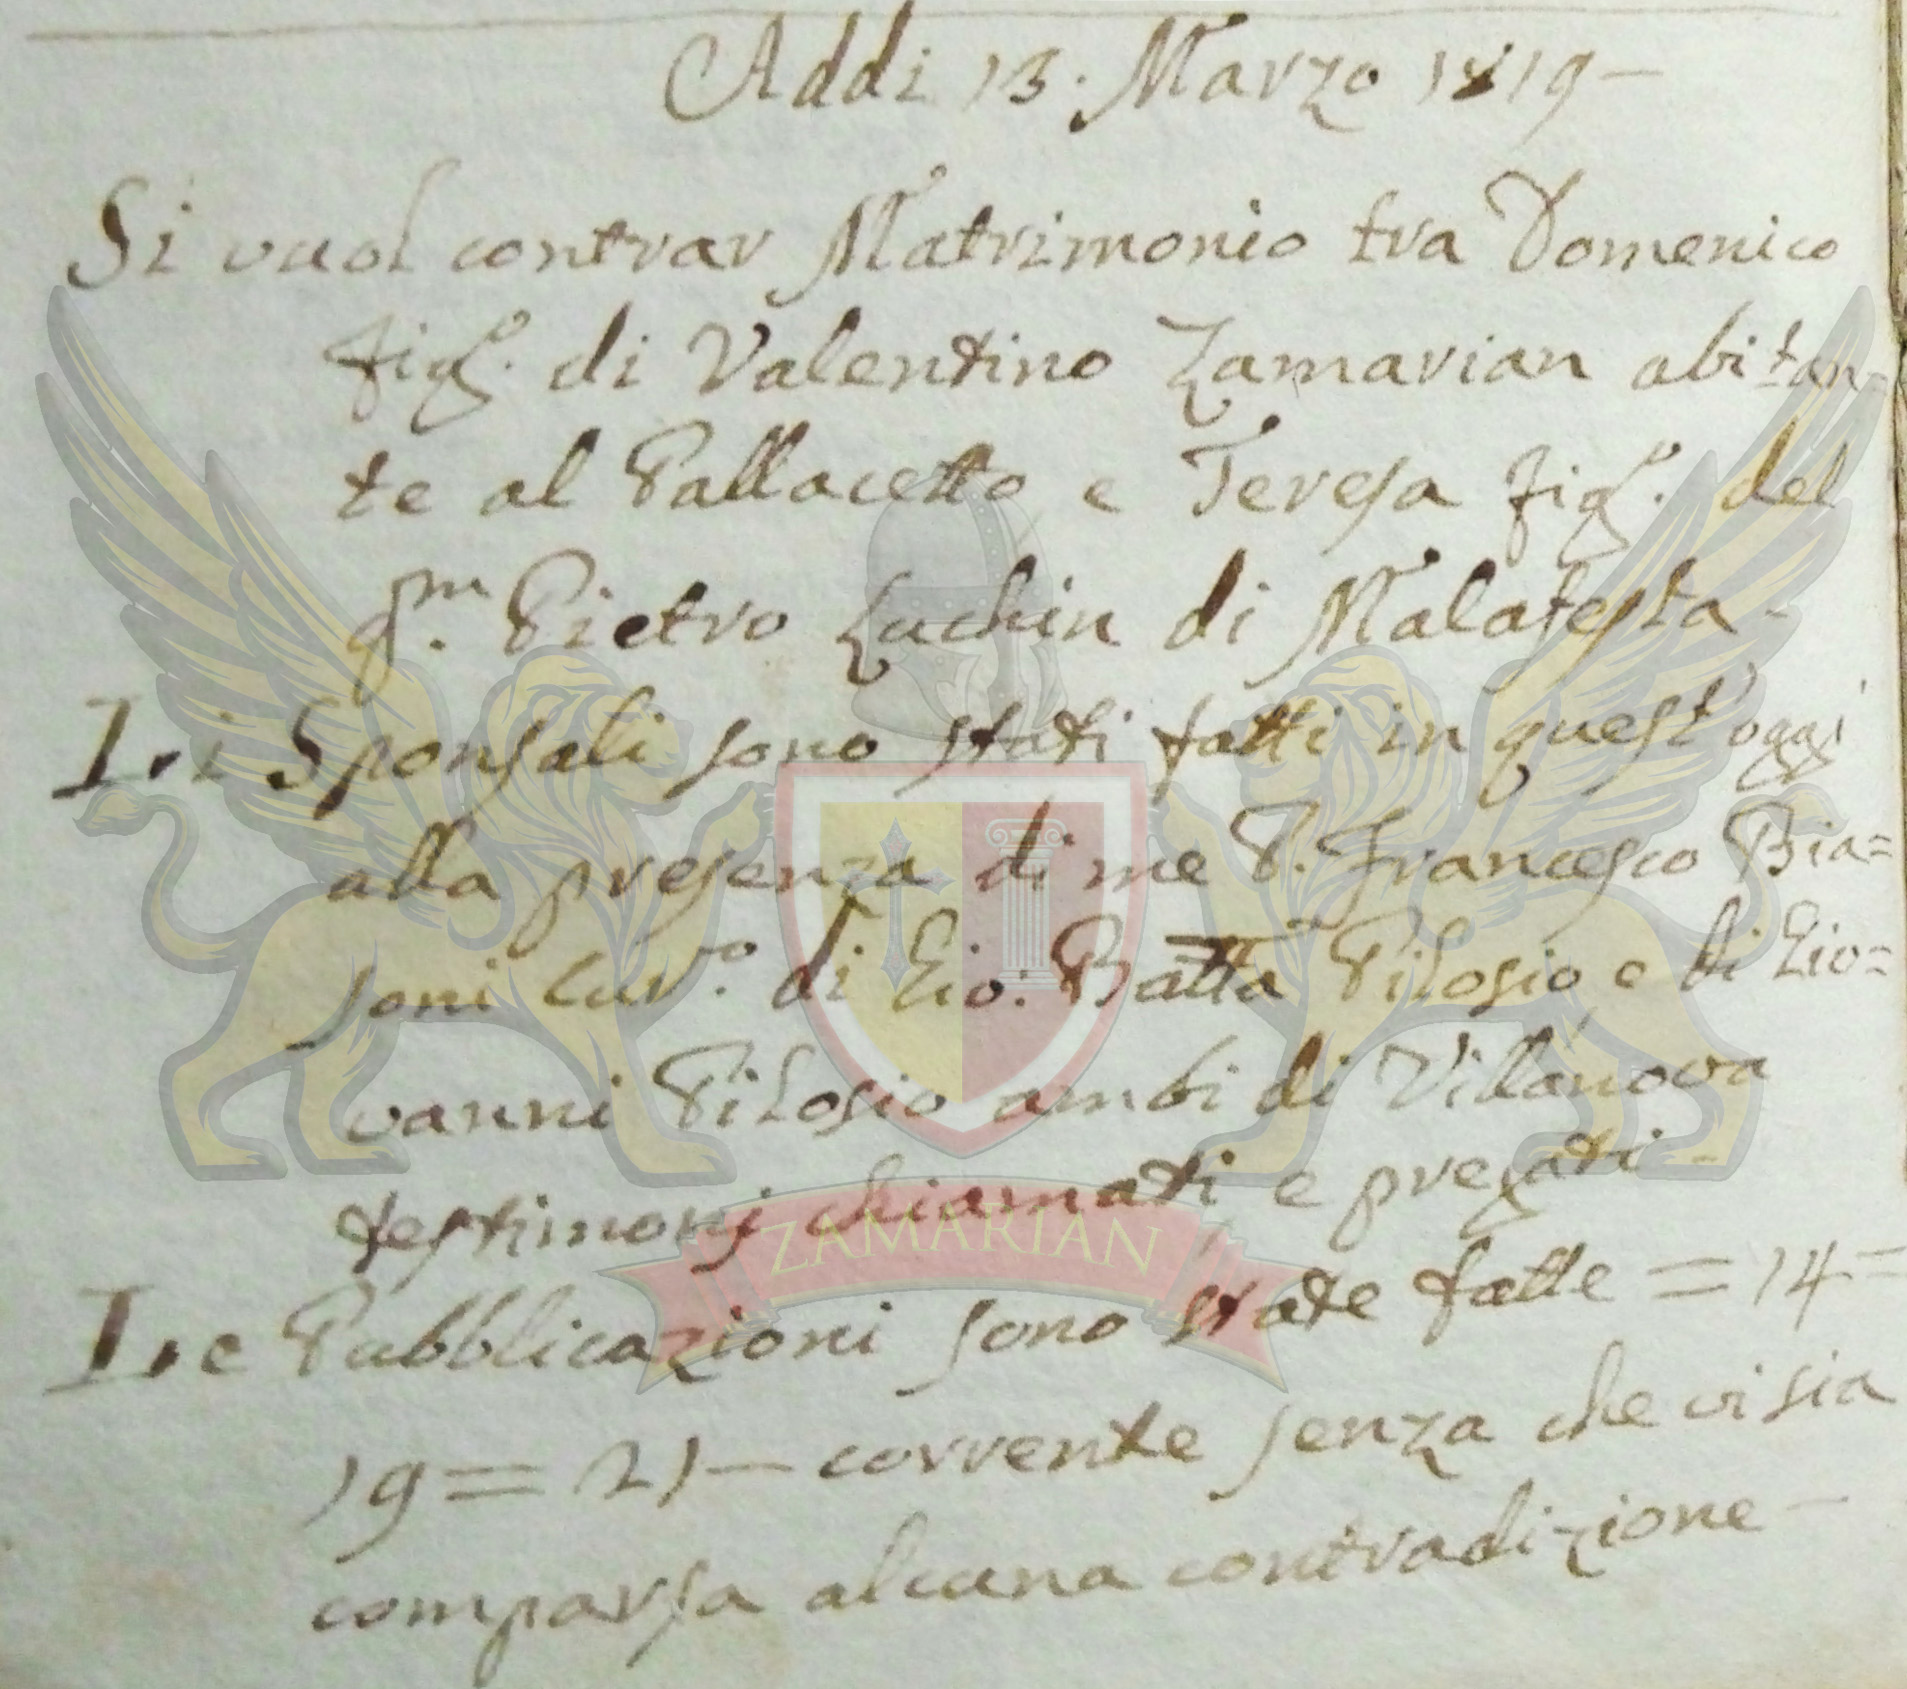 Addi 13. Marzo 1819 –
Si vuol contrar Matrimonio tra Domenico
figo. di Valentino Zamarian abitan-
te al Pallacetto e Teresa figa. del
qm. Pietro Luchin di Malafesta -
I. i Sponsali sono stati fatti in quest'oggi
alla presenza di me P. Francesco Bia=
soni Curo. di Gio: Batta Pilosio e di Gio=
vanni Pilosio ambi di Villanova
testimonj chiamati e pregati -
ZAMARIAN
I. e Pubblicazioni sono state fatte = 14 =
19 = 21 – corrente senza che vi sia
comparsa alcuna contradizione –